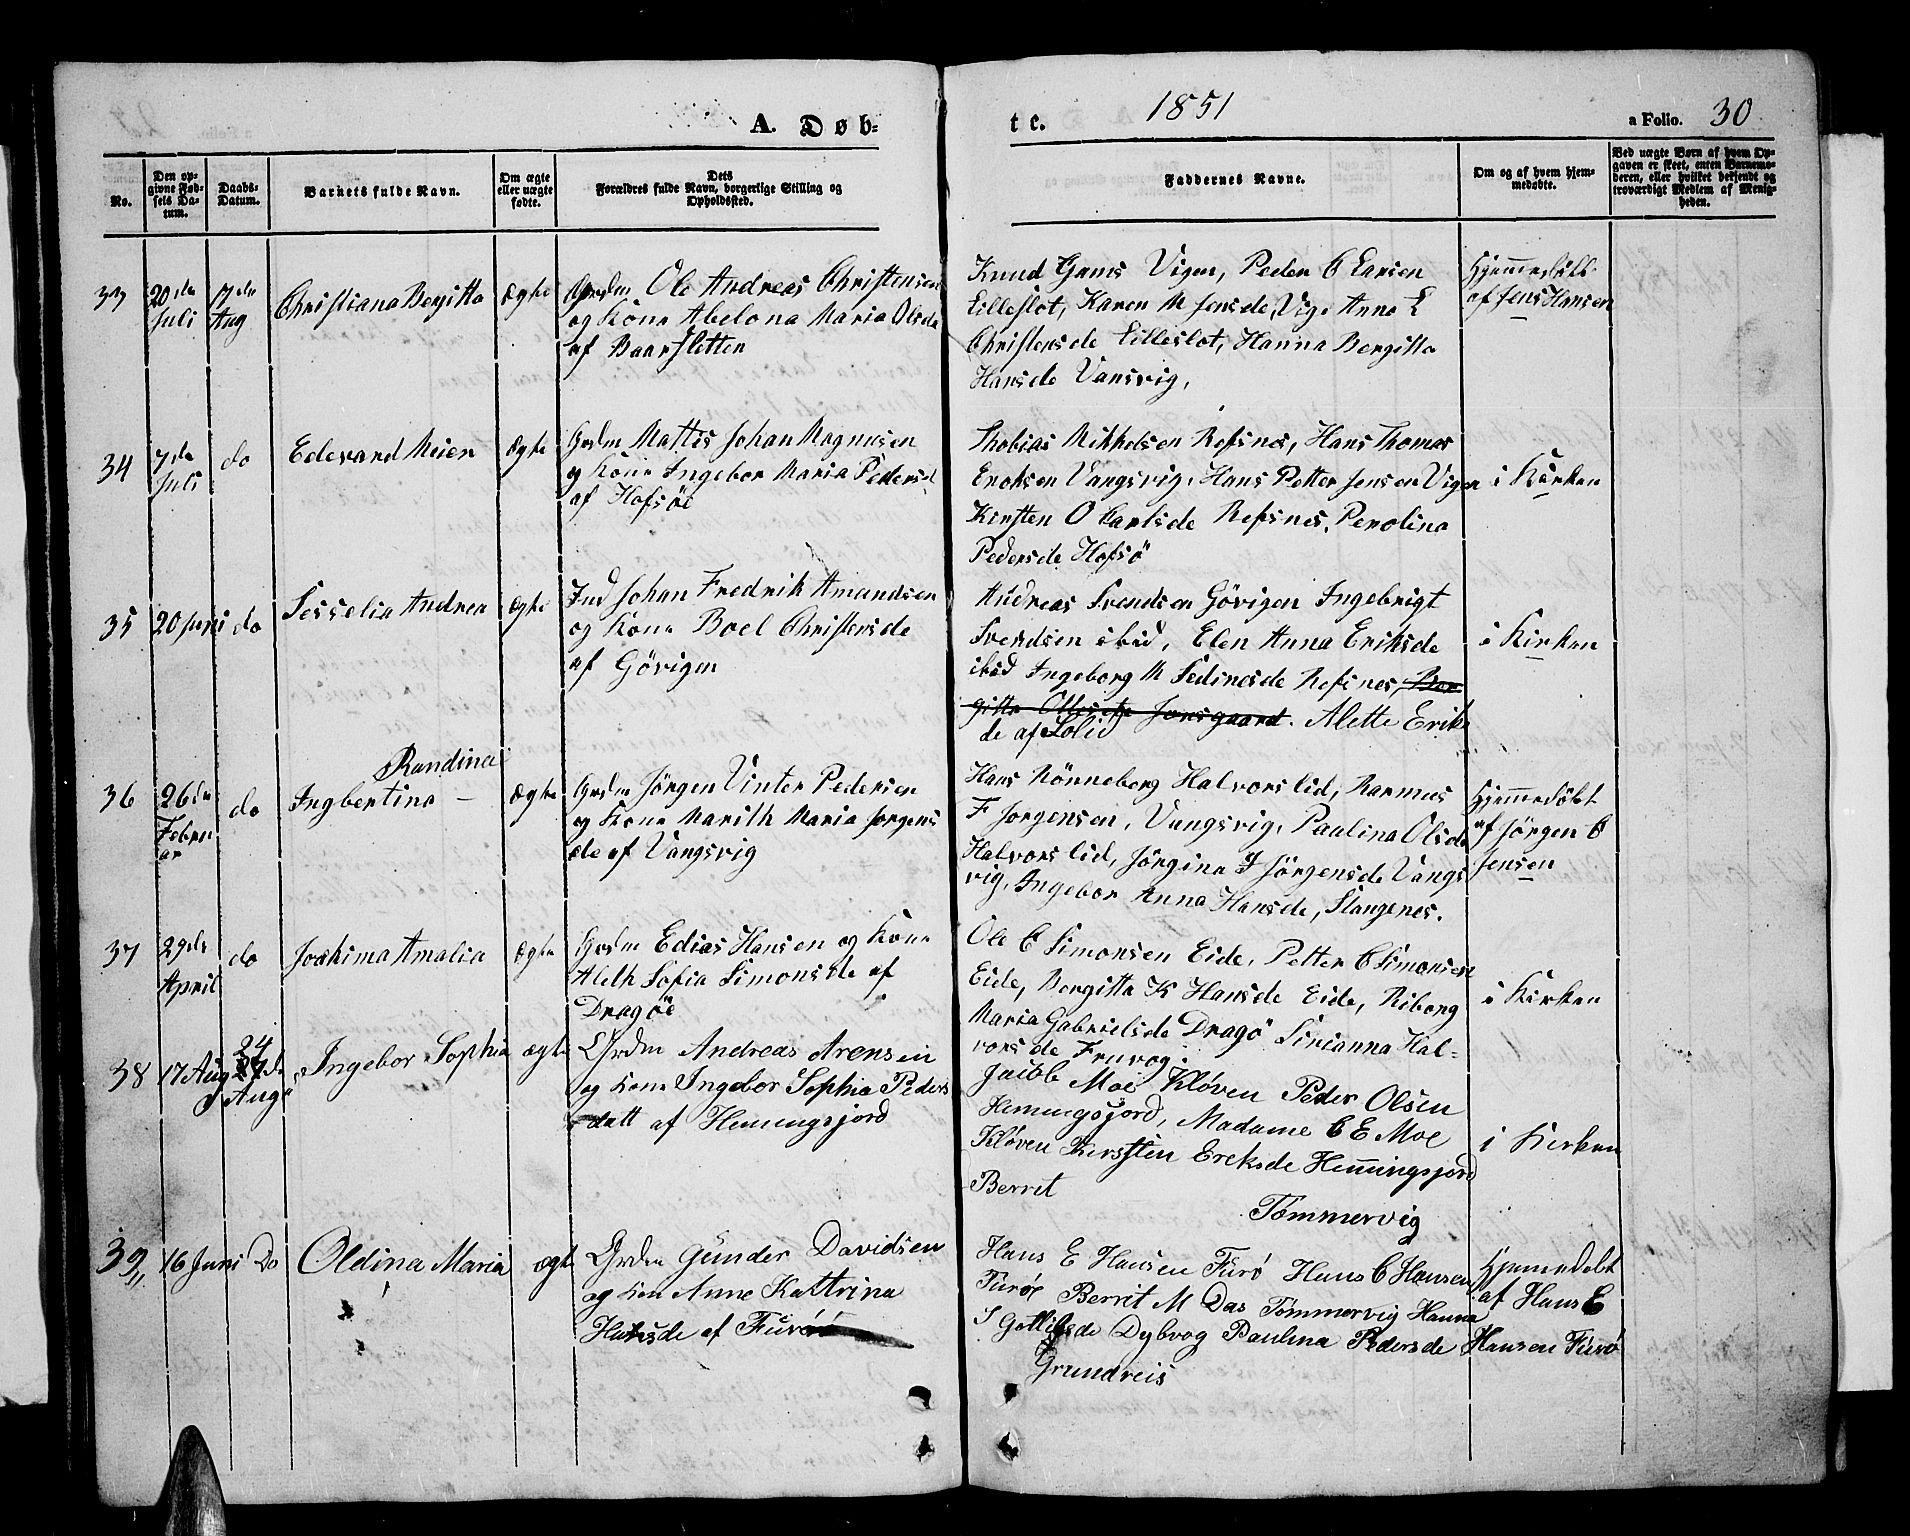 A. Døb-
te.
1851
a Folio. 30
No.
Den op-
givne Fød-
sels Da-
tum.
Daabs-
Datum.
Barnets fulde Navn.
Om ægte
eller uægte
fødte.
Dets
Forældres fulde Navn, borgerlige Stilling og
Opholdssted.
Faddernes Navne.
Om og af hvem hjem-
medøbte.
Ved uægte Børn af hvem Op-
gaven er skeet, enten Barnemo-
deren, eller hvilket bekjendt og
troværdigt Medlem af Menig-
heden.
33
20de
Juli
7de
Aug
Christiana Bergitta
Ægte
Grdm Ole Andreas Christensen
og Kone Abelona Maria Olsde
af Baarsletten
Knud Vigen, Peder C Larsen
Lilleslot, Karen M Jensde, Vig. Anna L
Christensde Lilleslot, Hanna Bergitta
Hansde Vansvig,
Hjemmedöbt
af Jens Hansen
34
7de
Juli
do
Edevard Meier
Ægte
Grdm Mattis Johan Magnusen
og Kone Ingebor Maria Pedersd
af Hofsöe
Thobias Mikkelsen Refsnes, Hans Thomas
Eroksen Vangsvig, Hans Petter Jensen Vigen
Kirsten O Carlsde Refsnes, Perolina
Pedersde Hofsö
i Kirken
35
20 Juni
do
Sesselia Andrea
Ægte
Ind Johan Fredrik Amundsen
og Kone Boel Christensde
af Gövigen
Andreas Svendsen Gövigen Ingebrigt
Svendsen ibid, Elen Anna Eriksde
ibid Ingeborg M Sedinesde Refsnes, Ber
gitta Jensgaard. Alette Eriks
de af Solid
i Kirken
36
26de
Febru
ar
do
Randina
Ingbertina –
Ægte
Grdm Jörgen Vinter Pedersen
og Kone Marith Maria Jorgens
de af Vangsvig
Hans Rönneberg Halvorslid, Rasmus
F Jorgensen, Vangsvig, Paulina Olsde
Halvorslid, Jörgina J Jörgensde Vangs
vig, Ingebor Anna Hansde, Stangenes.
Hjemmedöbt
af Jörgen C
Jensen
37
29de
April
do
Joakima Amalia
Ægte
Grdm Edias Hansen og Kone
Aleth Sofia Simonsde af
Dragöe
Ole C Simonsen Eide, Petter C Simonsen
Eide, Bergitta K Hansde Eide, Riborg
Maria Gabrielsde Dragö Sirianna Hal-
vorsde Fruvog.
i Kirken
38
17 Aug
24
de
Aug
Ingebor Sophia
ægte
Grdm Andreas Arensen
og Kone Ingebor Sophia Peders
datt af Hemingsjord
Jacob Moe Kløven Peder Olsen
Hemingsjord, Madame C E Moe
Kløven Kirssten Ereksde Hemingsjord
Berret
Tømmervig
i Kirken
39
16 Juni
Do
Oldina Maria
ægt
Grdm Gunder Davidsen
og Kon Anne Kattrina
Hansde af Furöe
Hans E Hansen Furø Hans C Hansen
Furøe Berrit M Das Tømmervig Hanna
S Gotlibsde Dybvog Paulina Pedersde
Grundreis
Hjemmedøbt
af Hans E
Hansen Furø